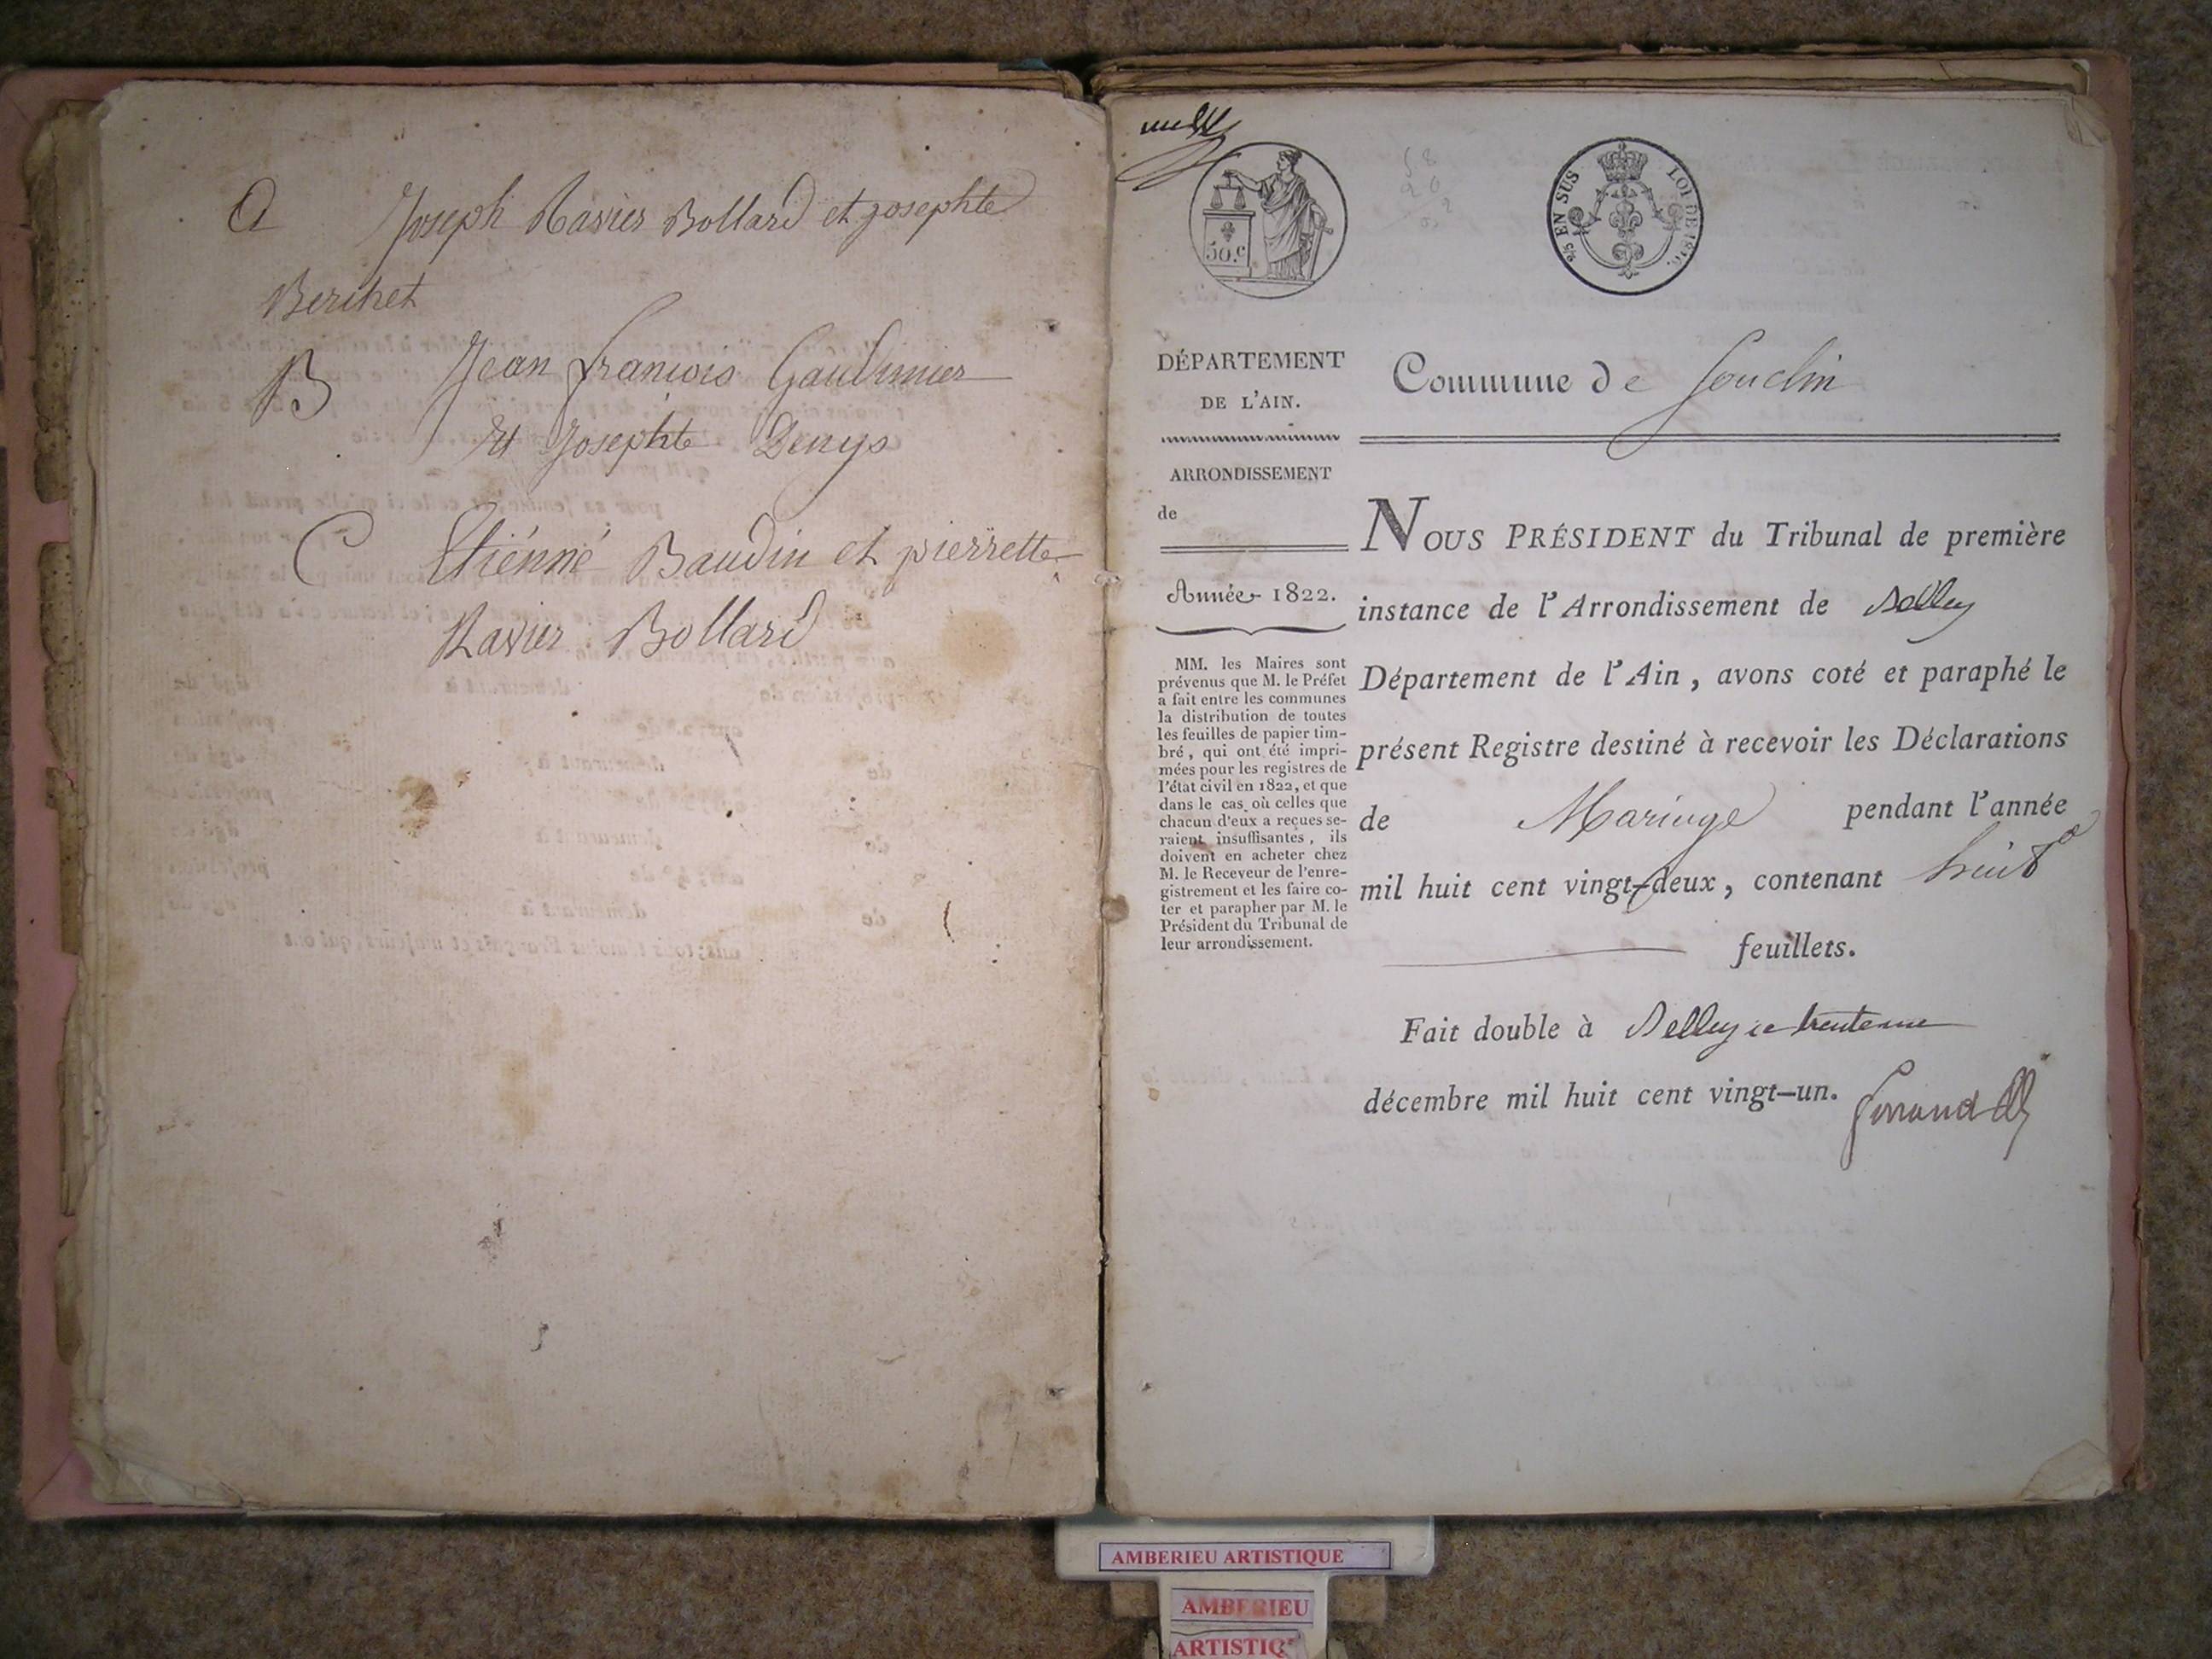 A Joseph Ravier Bollard et josephte
Berthet
B Jean francois Gaudinier
Et Josephte Denys
C Etiénné Baudin et pierrette
Ravier Bollard
50.c
2/5 EN SUS LOI DE 1816.
DÉPARTEMENT
DE L'AIN.
ARRONDISSEMENT
de
Année 1822.
MM. les Maires sont
prévenus que M. le Préfet
a fait entre les communes
la distribution de toutes
les feuilles de papier tim-
bré, qui ont été impri-
mées pour les registres de
l'état civil en 1822, et que
dans le cas où celles que
chacun d'eux a reçues se-
raient insuffisantes, ils
doivent en acheter chez
M. le Receveur de l'enre-
gistrement et les faire co-
ter et parapher par M. le
Président du Tribunal de
leur arrondissement.
Commune de Souclin
NOUS PRÉSIDENT du Tribunal de première
instance de l'Arrondissement de Belley
Département de l'Ain, avons coté et paraphé le
présent Registre destiné à recevoir les Déclarations
de Mariage pendant l'année
mil huit cent vingt-deux, contenant huit
feuillets.
Fait double à Belley ce trente un
décembre mil huit cent vingt-un.
AMBERIEU ARTISTIQUE
AMBERIEU
ARTISTIQ